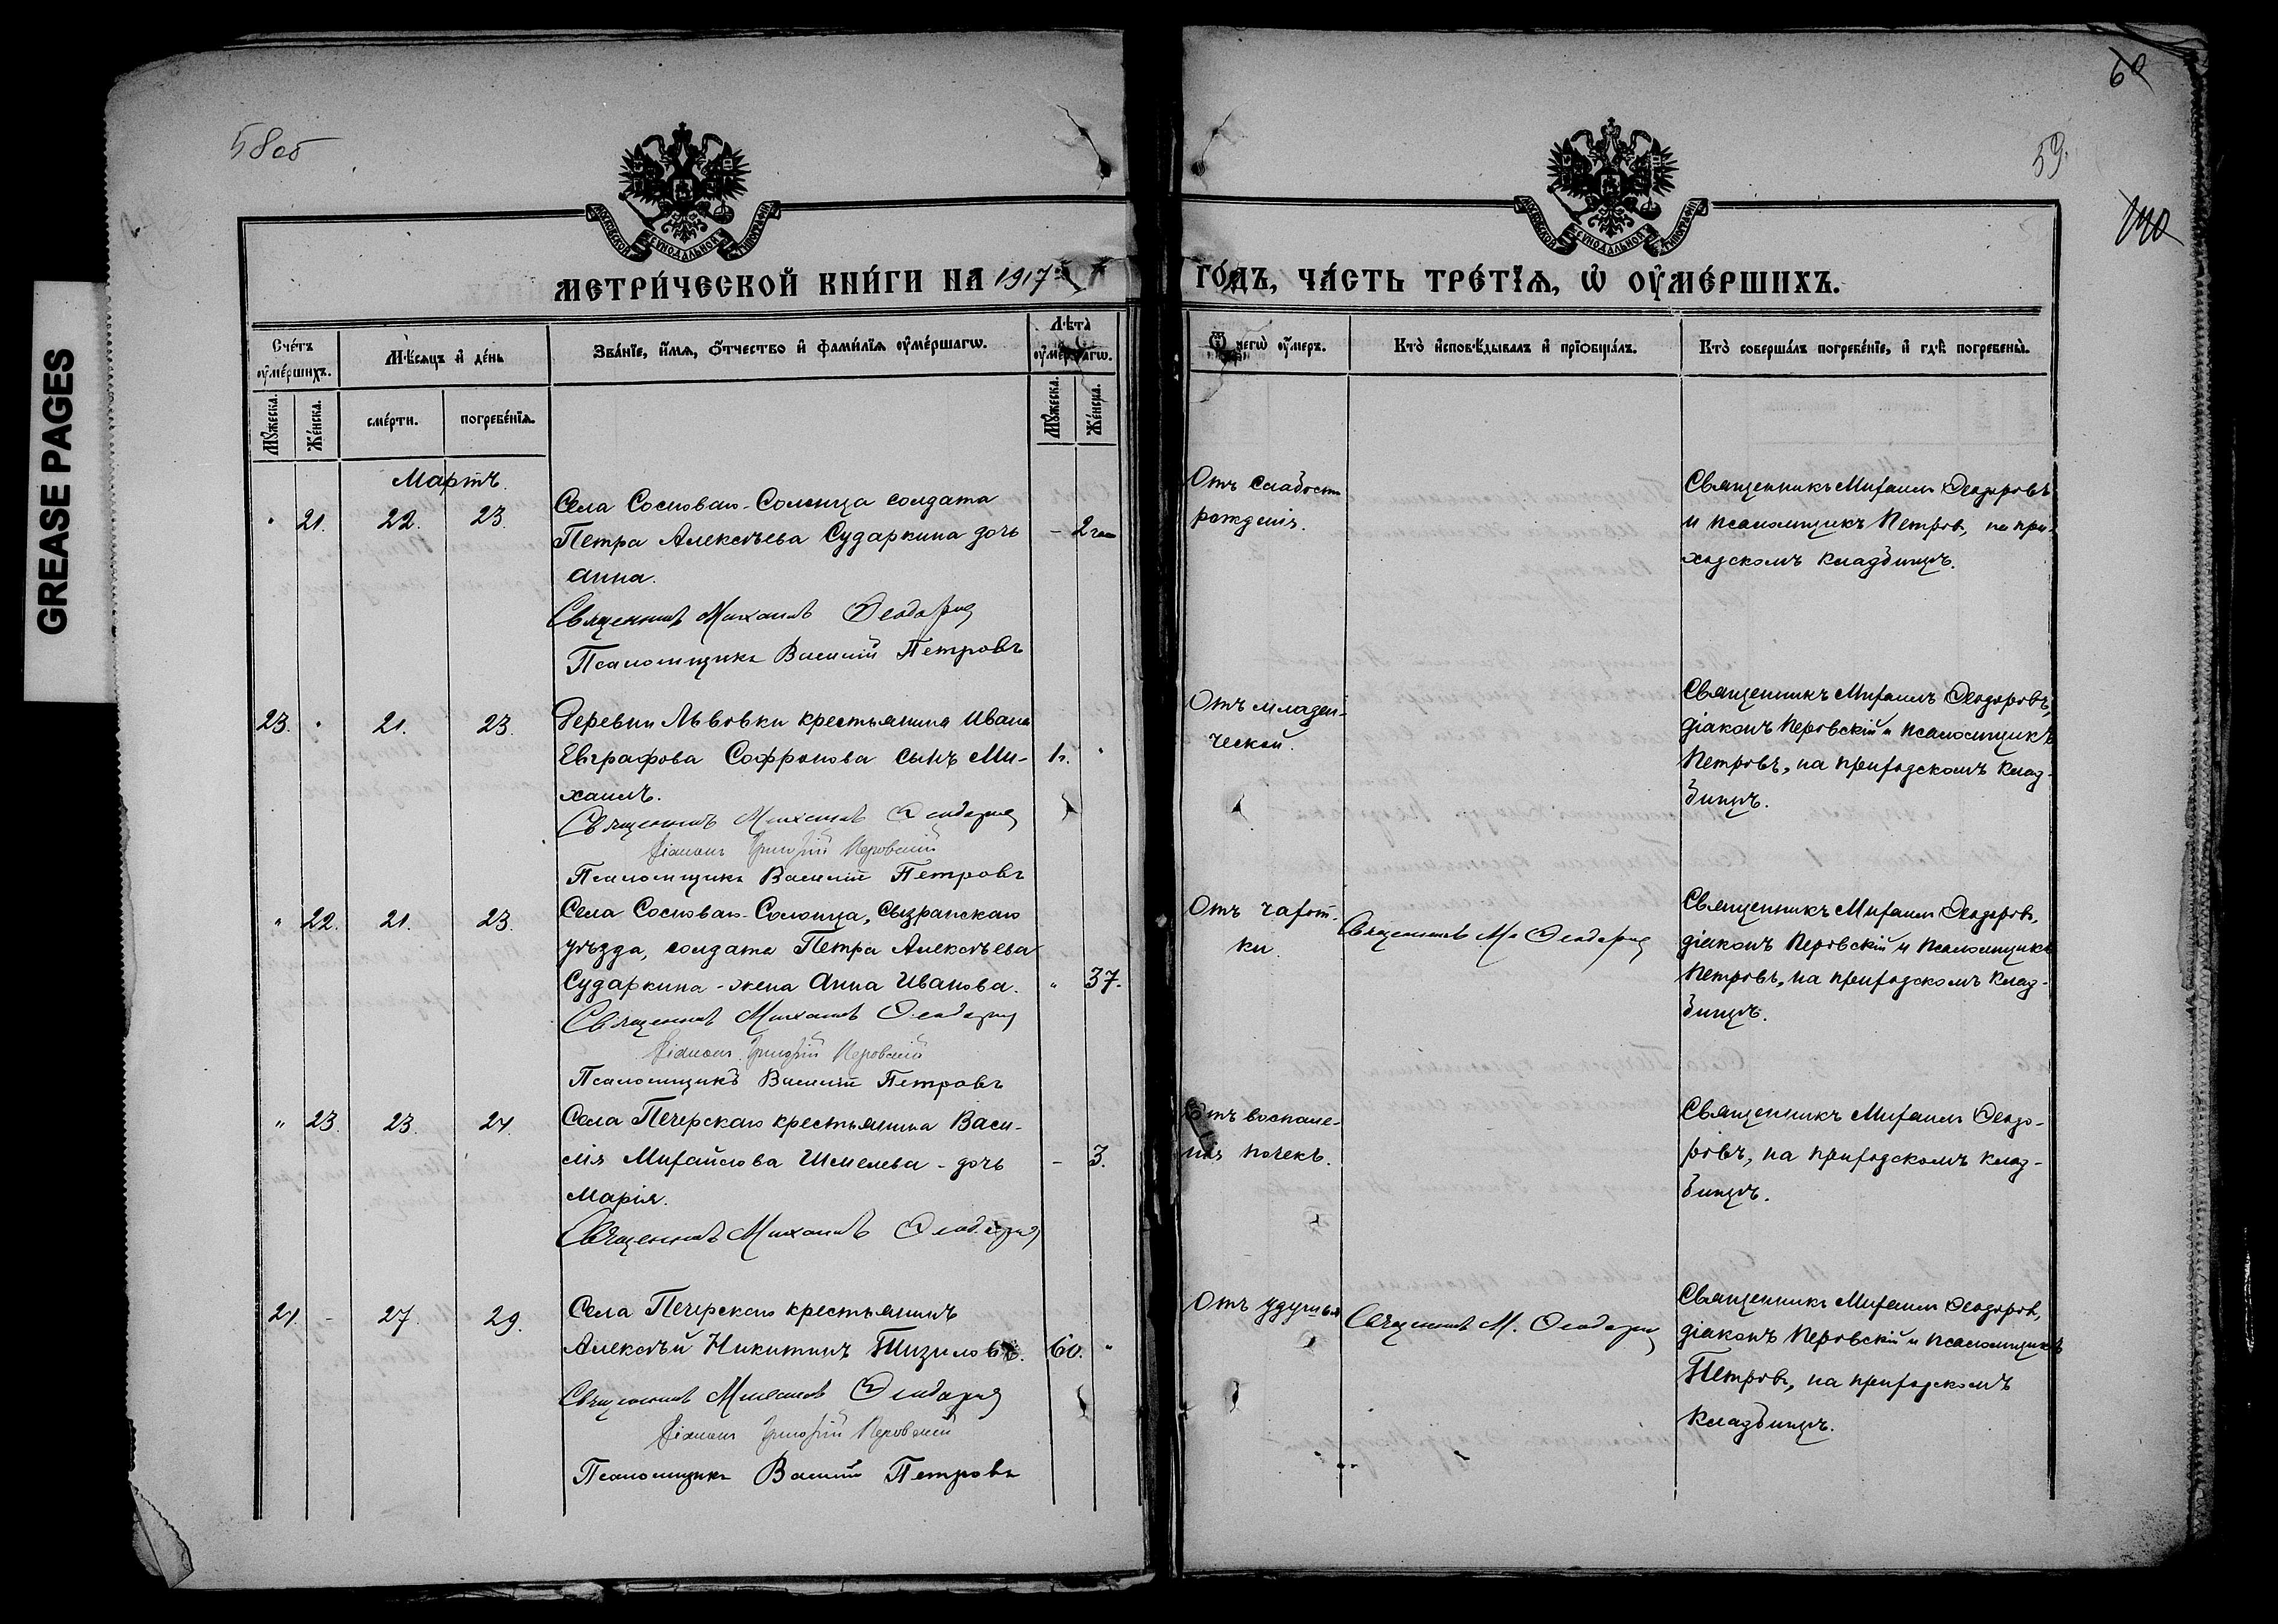 GREASE PAGES
58об
60
59.
140
МОСКОВСКОЙ СУНОДАЛЬНОЙ ТИПОГРАФІИ
МОСКОВСКОЙ СУНОДАЛЬНОЙ ТИПОГРАФІИ
МЕТРИ́ЧЕСКОЙ КНИ́ГИ НА 1917 ГО́ДЪ, ЧА́СТЬ ТРЕ́ТЇѦ, Ѡ҆ ОУ҆МЕ́РШИХЪ.
Сче́тъ оу҆ме́ршихъ.
Мѣ́сѧцъ и҆ де́нь
Зва́нїе, и҆́мѧ, ѻ҆́тчество и҆ фами́лїѧ оу҆ме́ршагѡ.
Лѣ́та оу҆ме́ршагѡ.
Ѿ чегѡ̀ оу҆́меръ.
Кто̀ и҆сповѣ́дывалъ и҆ прїѡбща́лъ.
Кто̀ соверша́лъ погребе́нїе, и҆ гдѣ̀ погребены̀.
Мꙋ́жеска.
Же́нска.
сме́рти.
погребе́нїѧ.
Мꙋ́жеска.
Же́нска.
Мартъ.
" 21. 22. 23.
Села Сосноваго-Солонца солдата
Петра Алексѣева Сударкина дочь
Анна.
– 2
Священникъ Михаилъ Ѳеодоровъ
Псаломщикъ Василій Петровъ
Отъ слабости
рожденія.
Священникъ Михаилъ Ѳеодоровъ
и псаломщикъ Петровъ, на при-
ходскомъ кладбищѣ.
23. " 21. 23.
Деревни Львовки крестьянина Ивана
Евграфова Софронова сынъ Ми-
хаилъ.
1г. "
Священникъ Михаилъ Ѳеодоровъ
Діаконъ Григорій Перовскій
Псаломщикъ Василій Петровъ
Отъ младен-
ческой.
Священникъ Михаилъ Ѳеодоровъ,
діаконъ Перовскій и псаломщикъ
Петровъ, на приходскомъ клад-
бищѣ.
" 22. 21. 23.
Села Сосноваго-Солонца, Сызранскаго
уѣзда, солдата Петра Алексѣева
Сударкина - жена Анна Иванова.
" 37.
Священникъ Михаилъ Ѳеодоровъ
Діаконъ Григорій Перовскій
Псаломщикъ Василій Петровъ
Отъ чахот-
ки.
Священникъ М. Ѳеодоровъ
Священникъ Михаилъ Ѳеодоровъ,
діаконъ Перовскій и псаломщикъ
Петровъ, на приходскомъ клад-
бищѣ.
" 23. 23. 24.
Села Печерскаго крестьянина Васи-
лія Михайлова Шмелева - дочь
Марія.
– 3.
Священникъ Михаилъ Ѳеодоровъ
Отъ воспале-
нія почекъ.
Священникъ Михаилъ Ѳеодо-
ровъ, на приходскомъ клад-
бищѣ.
24. - 27. 29.
Села Печерскаго крестьянинъ
Алексѣй Никитинъ Тизиловъ.
60. "
Священникъ Михаилъ Ѳеодоровъ
Діаконъ Григорій Перовскій
Псаломщикъ Василій Петровъ
Отъ удушья
Священникъ М. Ѳеодоровъ
Священникъ Михаилъ Ѳеодоровъ,
діаконъ Перовскій и псаломщикъ
Петровъ, на приходскомъ
кладбищѣ.